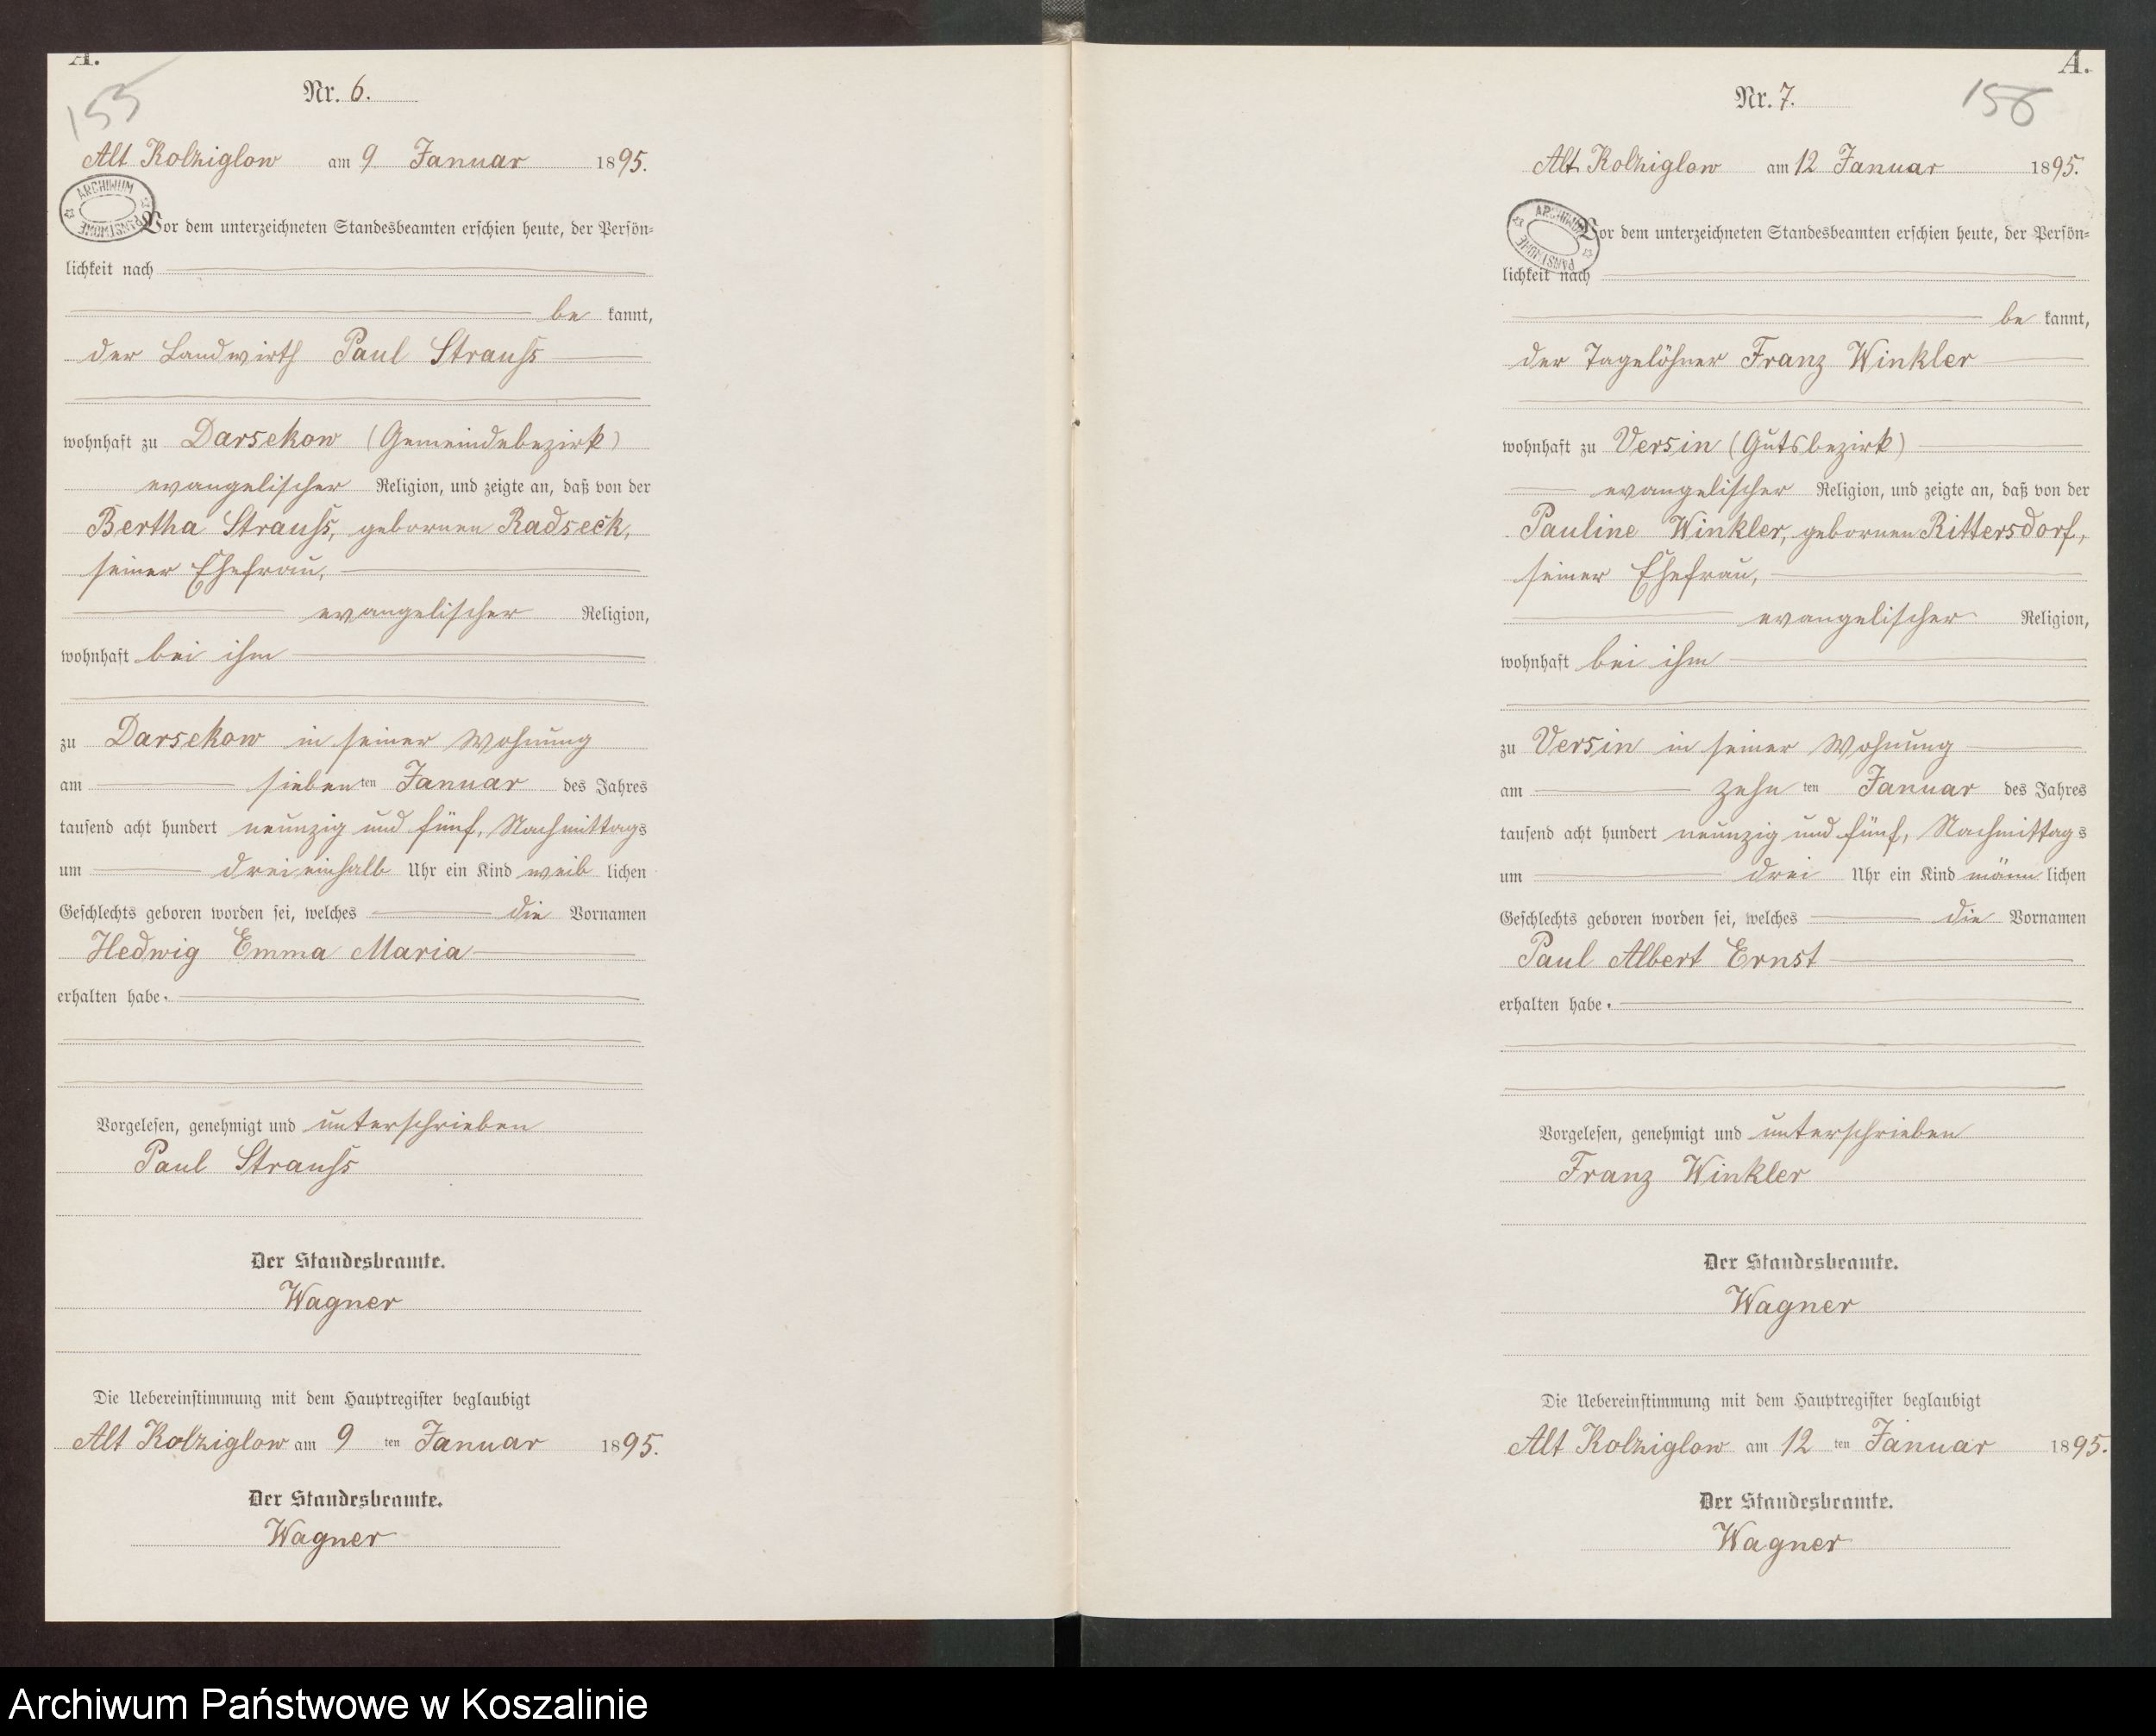 A.
155
Nr. 6.
Alt Kolziglow am 9 Januar 1895.
ARCHIWUM PAŃSTWOWE
Vor dem unterzeichneten Standesbeamten erschien heute, der Persön-
lichkeit nach
be kannt,
der Landwirth Paul Strauß
wohnhaft zu Darsekow (Gemeindebezirk)
evangelischer Religion, und zeigte an, daß von der
Bertha Strauß, gebornen Radseck,
seiner Ehefrau,
evangelischer Religion,
wohnhaft bei ihm
zu Darsekow in seiner Wohnung
am sieben ten Januar des Jahres
tausend acht hundert neunzig und fünf, Nachmittags
um dreieinhalb Uhr ein Kind weib lichen
Geschlechts geboren worden sei, welches die Vornamen
Hedwig Emma Maria
erhalten habe.
Vorgelesen, genehmigt und unterschrieben
Paul Strauß
Der Standesbeamte.
Wagner
Die Uebereinstimmung mit dem Hauptregister beglaubigt
Alt Kolziglow am 9 ten Januar 1895.
Der Standesbeamte.
Wagner
A.
156
Nr. 7.
Alt Kolziglow am 12 Januar 1895.
ARCHIWUM PAŃSTWOWE
Vor dem unterzeichneten Standesbeamten erschien heute, der Persön-
lichkeit nach
be kannt,
der Tagelöhner Franz Winkler
wohnhaft zu Versin (Gutsbezirk)
evangelischer Religion, und zeigte an, daß von der
Pauline Winkler, gebornen Rittersdorf,
seiner Ehefrau,
evangelischer Religion,
wohnhaft bei ihm
zu Versin in seiner Wohnung
am zehn ten Januar des Jahres
tausend acht hundert neunzig und fünf, Nachmittags
um drei Uhr ein Kind männ lichen
Geschlechts geboren worden sei, welches die Vornamen
Paul Albert Ernst
erhalten habe.
Vorgelesen, genehmigt und unterschrieben
Franz Winkler
Der Standesbeamte.
Wagner
Die Uebereinstimmung mit dem Hauptregister beglaubigt
Alt Kolziglow am 12 ten Januar 1895.
Der Standesbeamte.
Wagner
Archiwum Państwowe w Koszalinie